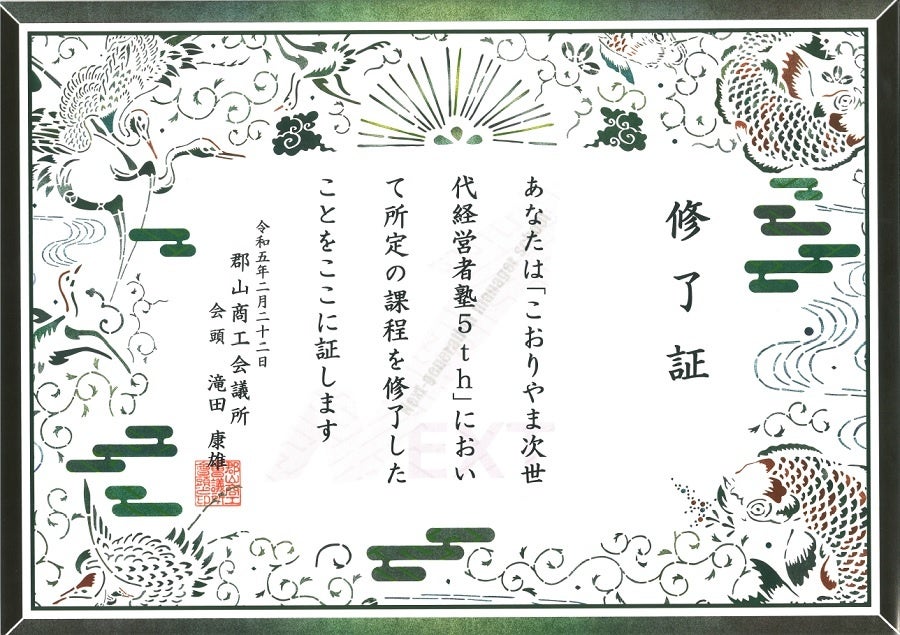 修了証
あなたは「こおりやま次世
代経営者塾5th」におい
て所定の課程を修了した
ことをここに証します
令和五年二月二十二日
郡山商工会議所
会頭 滝田 康雄